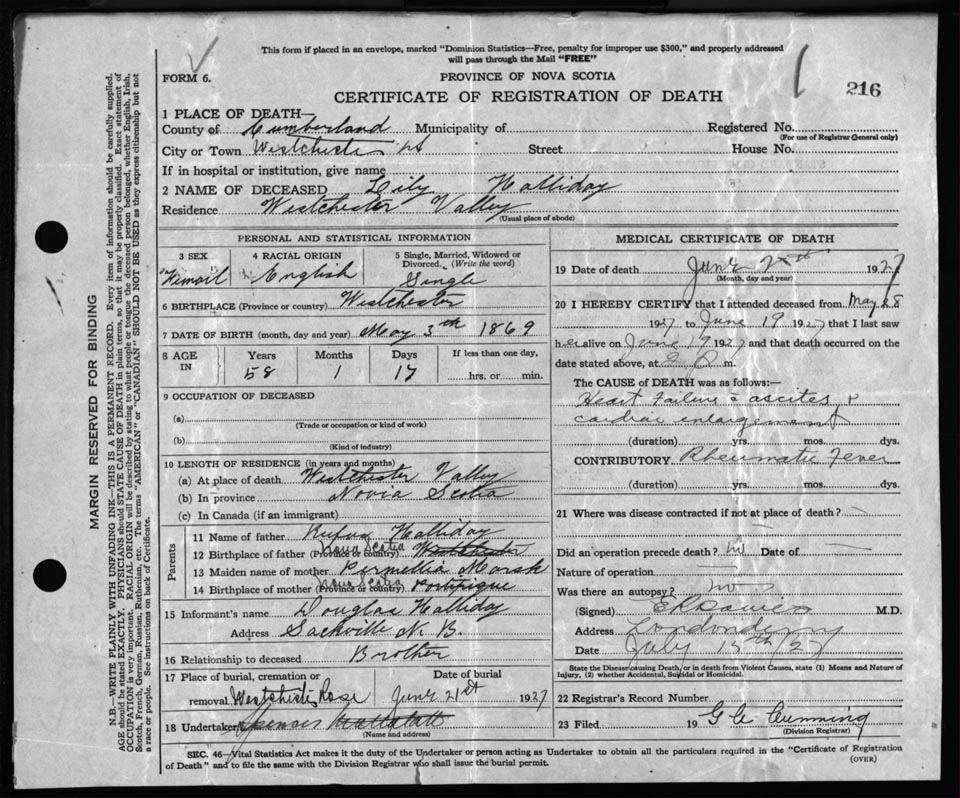 This form if placed in an envelope, marked "Dominion Statistics—Free, penalty for improper use $300," and properly addressed
will pass through the Mail "FREE"
FORM 6.
PROVINCE OF NOVA SCOTIA
216
CERTIFICATE OF REGISTRATION OF DEATH
1 PLACE OF DEATH—
County of Cumberland Municipality of Registered No.
(For use of Registrar General only)
City or Town Westchester Street House No.
If in hospital or institution, give name
2 NAME OF DECEASED Lily Halliday
Residence Westchester Valley
(Usual place of abode)
PERSONAL AND STATISTICAL INFORMATION
3 SEX 4 RACIAL ORIGIN 5 Single, Married, Widowed or
Divorced. (Write the word)
English Single
6 BIRTHPLACE (Province or country) Westchester
7 DATE OF BIRTH (month, day and year) May 3th 1869
8 AGE IN Years Months Days If less than one day,
58 1 17 hrs. or min.
9 OCCUPATION OF DECEASED
(a)
(Trade or occupation or kind of work)
(b)
(Kind of industry)
10 LENGTH OF RESIDENCE (in years and months)
(a) At place of death Westchester Valley
(b) In province Novia Scotia
(c) In Canada (if an immigrant)
Parents
11 Name of father Rufus Halliday
12 Birthplace of father (Province or country) Nova Scotia Westchester
13 Maiden name of mother Permellia Marsh
14 Birthplace of mother (Province or country) Nova Scotia Portipique
15 Informant's name Douglas Halliday
Address Sackville N. B.
16 Relationship to deceased Brother
17 Place of burial, cremation or Date of burial
removal Westchester June 21st 1927
18 Undertaker Spencer
(Name and address)
MEDICAL CERTIFICATE OF DEATH
19 Date of death June 1927
(Month, day and year)
20 I HEREBY CERTIFY that I attended deceased from May 28
1927 to June 19 1927 that I last saw
her alive on June 19 1927 and that death occurred on the
date stated above, at m.
The CAUSE of DEATH was as follows:—
Heart Failure c ascites &
cardiac enlargement
(duration) yrs. mos. dys.
CONTRIBUTORY Rheumatic Fever
(duration) yrs. mos. dys.
21 Where was disease contracted if not at place of death?
Did an operation precede death? no Date of
Nature of operation
Was there an autopsy? no
(Signed) M.D.
Address Londonderry
Date July 15th/27
State the Disease causing Death, or in death from Violent Causes, state (1) Means and Nature of
Injury, (2) whether Accidental, Suicidal or Homicidal.
22 Registrar's Record Number
23 Filed 19 G C Cumming
(Division Registrar)
SEC. 46—Vital Statistics Act makes it the duty of the Undertaker or person acting as Undertaker to obtain all the particulars required in the "Certificate of Registration
of Death" and to file the same with the Division Registrar who shall issue the burial permit.
(OVER)
MARGIN RESERVED FOR BINDING
N.B.—WRITE PLAINLY WITH UNFADING INK—THIS IS A PERMANENT RECORD. Every item of information should be carefully supplied.
AGE should be stated EXACTLY. PHYSICIANS should STATE CAUSE OF DEATH in plain terms, so that it may be properly classified. Exact statement of
OCCUPATION is very important. RACIAL ORIGIN will be described by stating to what people or tongue the deceased person belonged, whether English, Irish,
Scotch, French, German, Russian, Ruthenian, etc. The terms "AMERICAN" or "CANADIAN" SHOULD NOT BE USED as they express citizenship but not
a race or people. See instructions on back of Certificate.